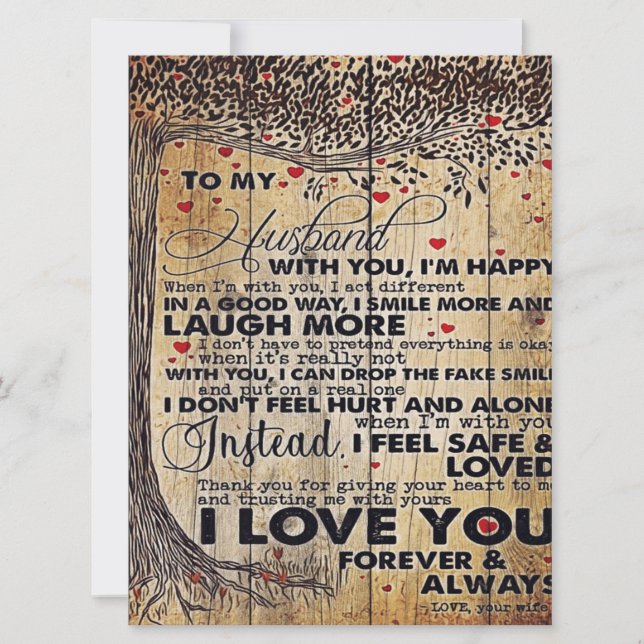 TO MY
Husband
WITH YOU, I'M HAPPY
When I'm with you, I act different
IN A GOOD WAY, I SMILE MORE AND
LAUGH MORE
I don't have to pretend everything is okay
when it's really not
WITH YOU, I CAN DROP THE FAKE SMILE
and put on a real one
I DON'T FEEL HURT AND ALONE
when I'm with you
Instead, I FEEL SAFE &
LOVED
Thank you for giving your heart to me
and trusting me with yours
I LOVE YOU
FOREVER &
ALWAYS
- LOVE, your wife